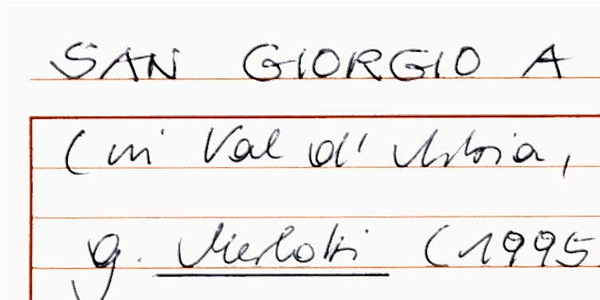 SAN GIORGIO A
(in Val d'Arbia,
g. Merlotti (1995